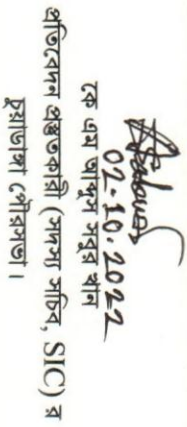 02.10.2022
কে এম আব্দুস সবুর খান
প্রতিবেদন প্রস্তুতকারী (সদস্য সচিব, SIC) র
চুয়াডাঙ্গা পৌরসভা।